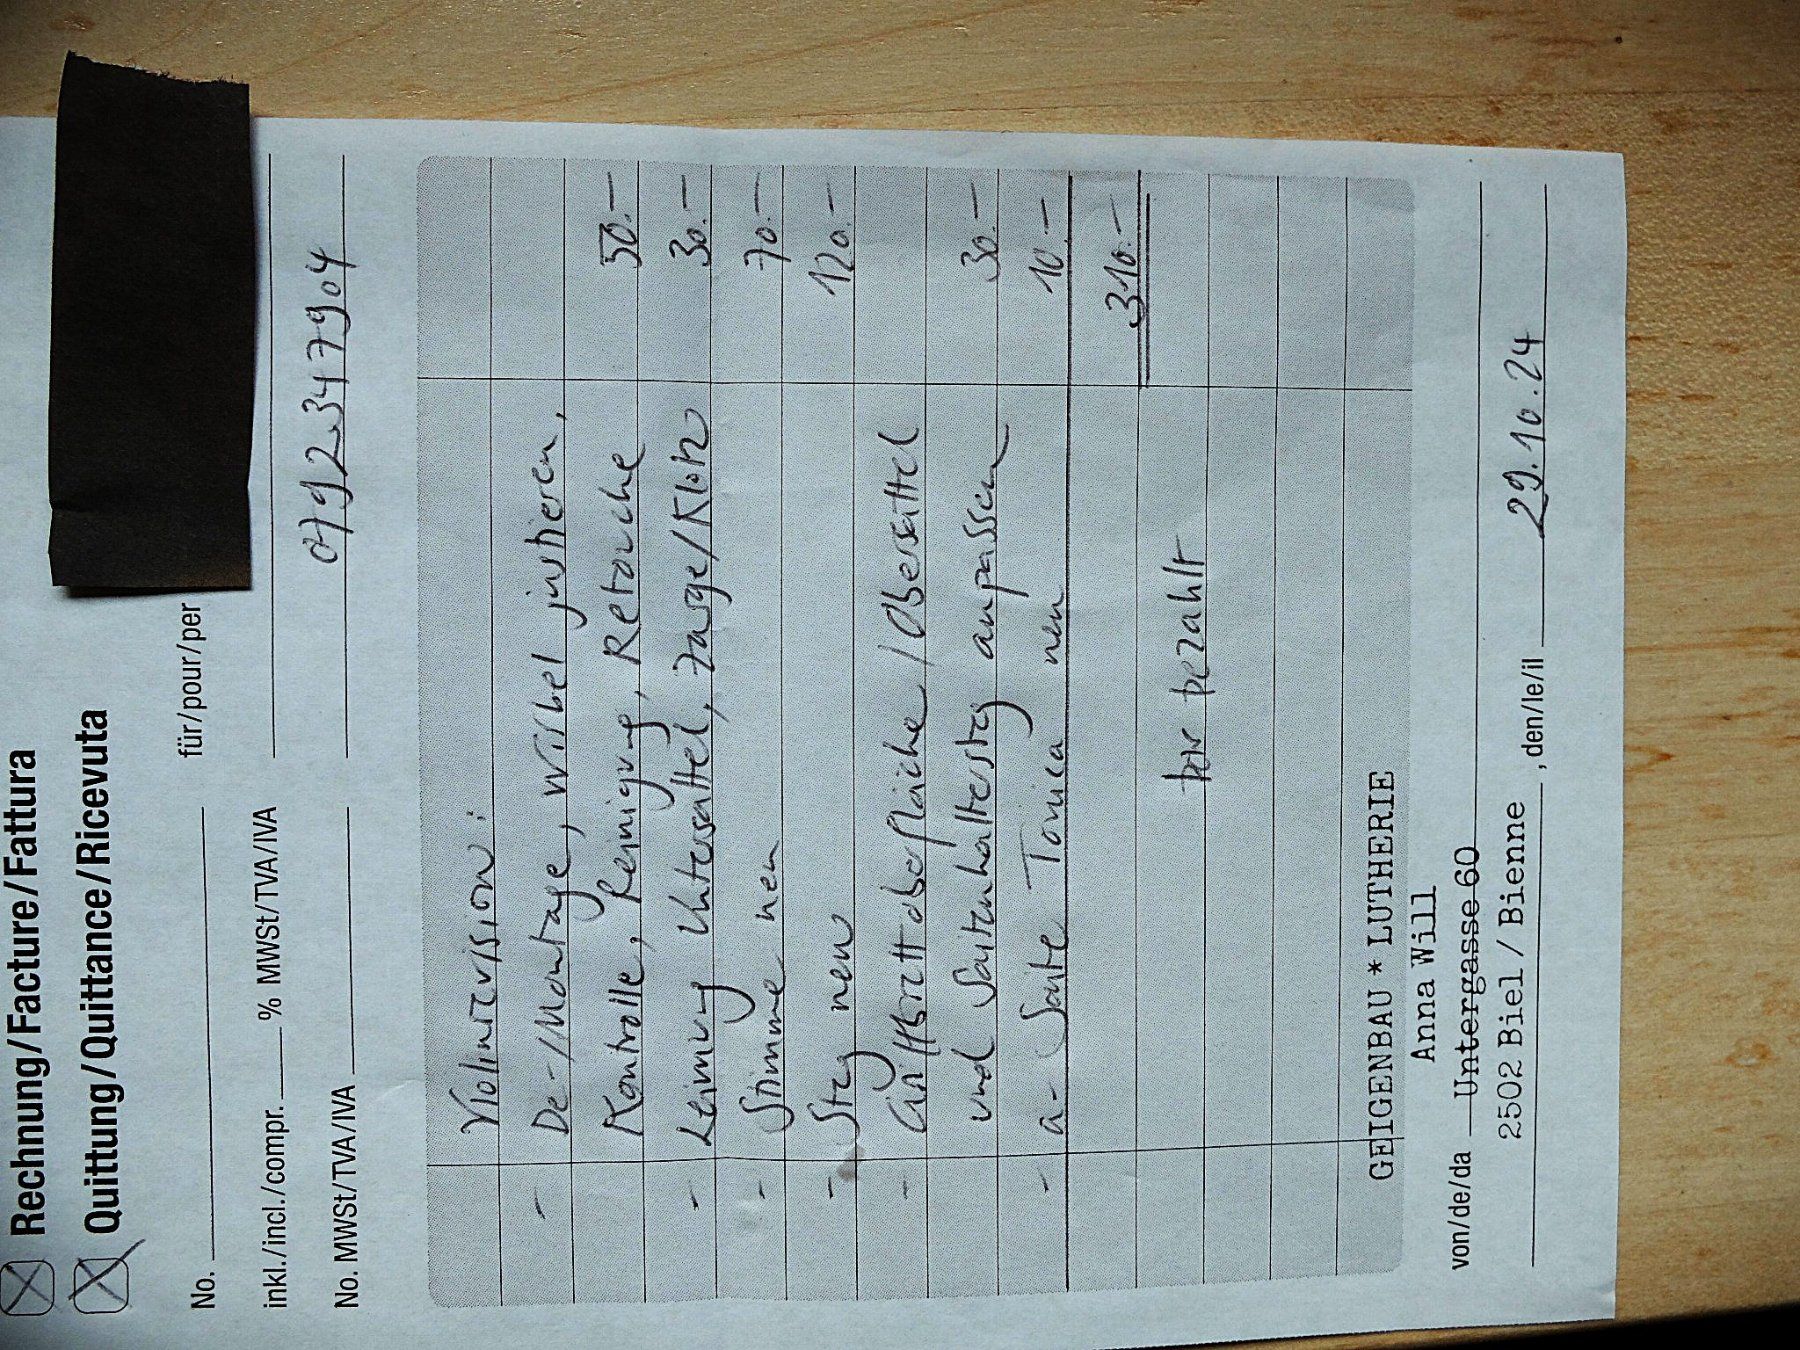 Rechnung/Facture/Fattura
Quittung/Quittance/Ricevuta
No. für/pour/per
inkl./incl./compr. % MWSt/TVA/IVA
No. MWSt/TVA/IVA 079 234 79 04
Violinrevision:
- De-/Montage, Wirbel justieren,
Kontrolle, Reinigung, Retouche 50.–
- Leimung Untersattel, Zarge/Klotz 30.–
- Stimme neu 70.–
- Steg neu 120.–
- Griffbrettoberfläche/Obersattel
und Saitenhaltersteg anpassen 30.–
- a- Saite Tonica neu 10.–
310.–
bar bezahlt
GEIGENBAU * LUTHERIE
Anna Will
von/de/da Untergasse 60
2502 Biel / Bienne , den/le/il 29.10.24